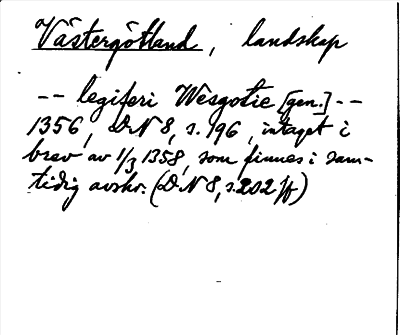 Västergötland, landskap
-- legiferi Wesgotie [gen.] --
1356, DN 8, s. 196, intaget i
brev av 1/3 1358, som finnes i sam-
tidig avskr. (DN 8, s. 202 ff)